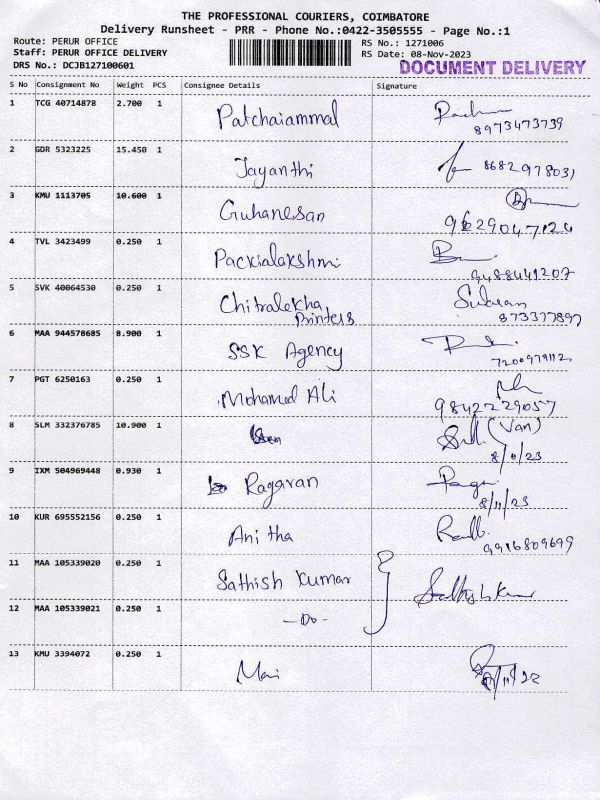 THE PROFESSIONAL COURIERS, COIMBATORE
Delivery Runsheet - PRR - Phone No.:0422-3505555 - Page No.:1
Route: PERUR OFFICE RS No.: 1271006
Staff: PERUR OFFICE DELIVERY RS Date: 08-Nov-2023
DRS No.: DCJB127100601 DOCUMENT DELIVERY
S No Consignment No Weight PCS Consignee Details Signature
1 TCG 40714878 2.700 1 Patchaiammal
8973473739
2 GDR 5323225 15.450 1 Jayanthi 8682978031
3 KMU 1113705 10.600 1 Guhanesan
9629047124
4 TVL 3423499 0.250 1 Packialakshmi
9488441207
5 SVK 40064530 0.250 1 Chitralekha
Printers 873377897
6 MAA 944578685 8.900 1 SSK Agency
7200979112
7 PGT 6250163 0.250 1 Mohamed Ali
9842229057
8 SLM 332376785 10.900 1 (Van)
8/11/23
9 IXM 504969448 0.930 1 Ragavan
8/11/23
10 KUR 695552156 0.250 1 Anitha
9916809699
11 MAA 105339020 0.250 1 Sathish Kumar Sathish Kumar
12 MAA 105339021 0.250 1 -Do-
13 KMU 3394072 0.250 1 Mani